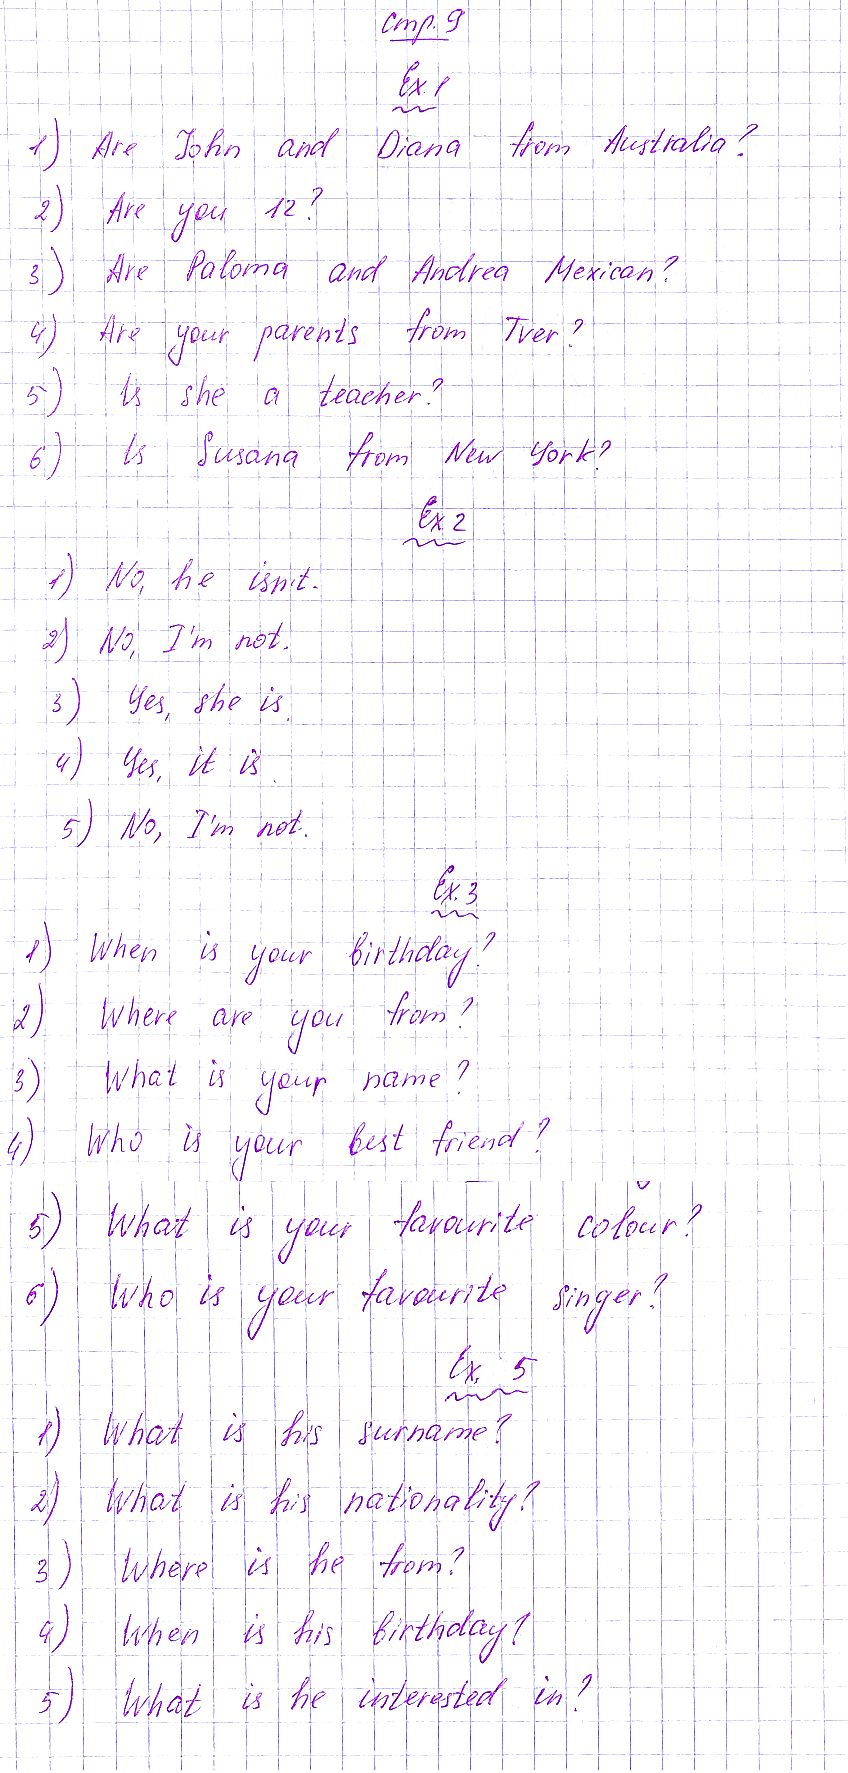 стр. 9
Ex. 1
1) Are John and Diana from Australia?
2) Are you 12?
3) Are Paloma and Andrea Mexican?
4) Are your parents from Tver?
5) Is she a teacher?
6) Is Susana from New York?
Ex. 2
1) No, he isn't.
2) No, I'm not.
3) Yes, she is.
4) Yes, it is.
5) No, I'm not.
Ex. 3
1) When is your birthday?
2) Where are you from?
3) What is your name?
4) Who is your best friend?
5) What is your favourite colour?
6) Who is your favourite singer?
Ex. 5
1) What is his surname?
2) What is his nationality?
3) Where is he from?
4) When is his birthday?
5) What is he interested in?